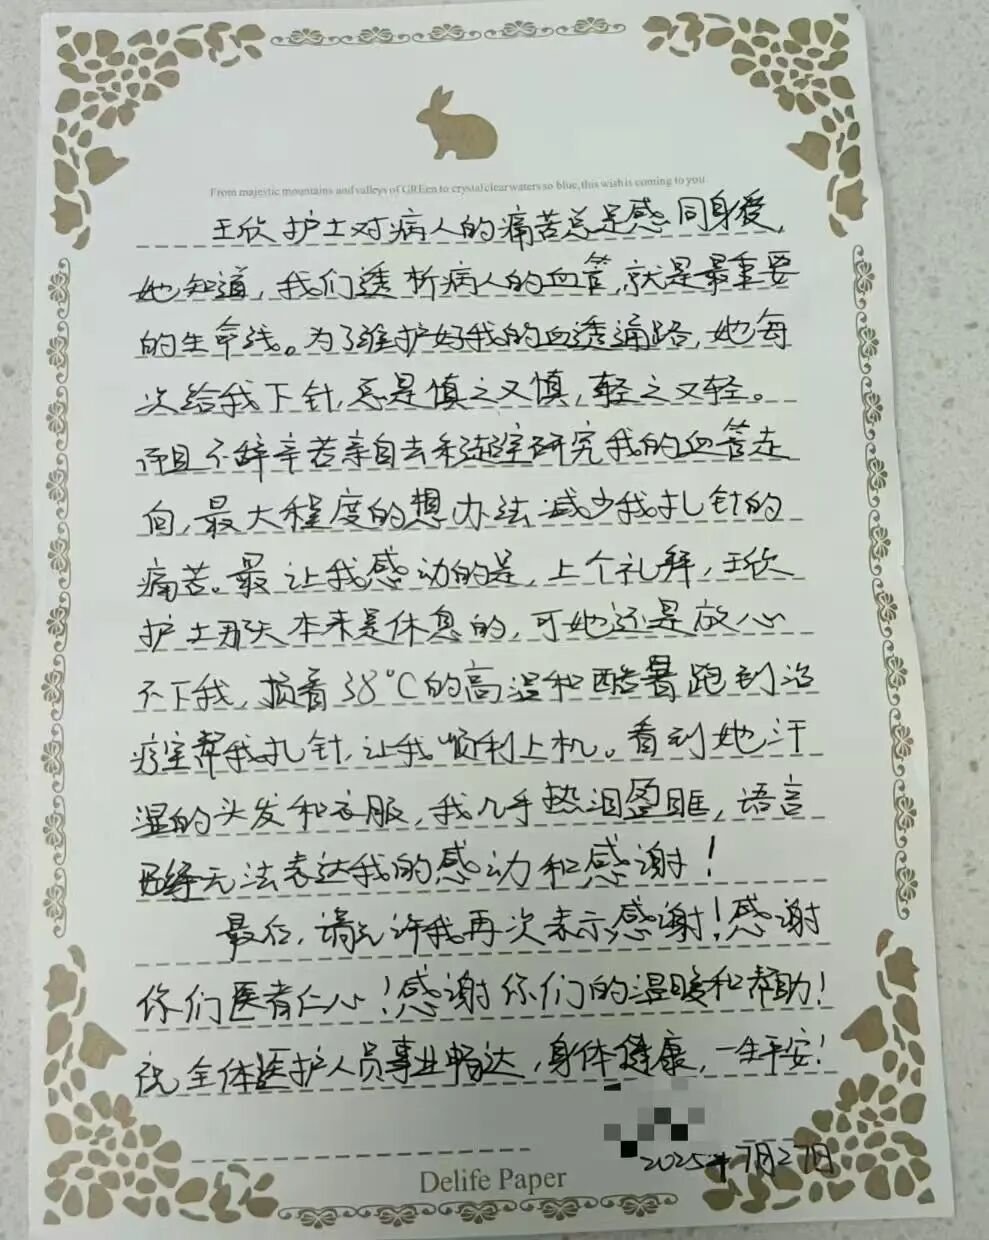 From majestic mountains and valleys of GREen to crystal clear waters so blue, this wish is coming to you
王欣护士对病人的痛苦总是感同身爱,
她知道,我们透析病人的血管,就是最重要
的生命线。为了维护好我的血透通路,她每
次给我下针,总是慎之又慎,轻之又轻。
而且不辞辛苦亲自去彩超室研究我的血管走
向,最大程度的想办法减少我扎针的
痛苦。最让我感动的是,上个礼拜,王欣
护士那天本来是休息的,可她还是放心
不下我,顶着38°C的高温和酷暑跑到治
疗室帮我扎针,让我顺利上机。看到她汗
湿的头发和衣服,我几乎热泪盈眶,语言
已经无法表达我的感动和感谢!
最后,请允许我再次表示感谢!感谢
你们医者仁心!感谢你们的温暖和帮助!
祝全体医护人员事业畅达,身体健康,一生平安!
2025年7月27日
Delife Paper